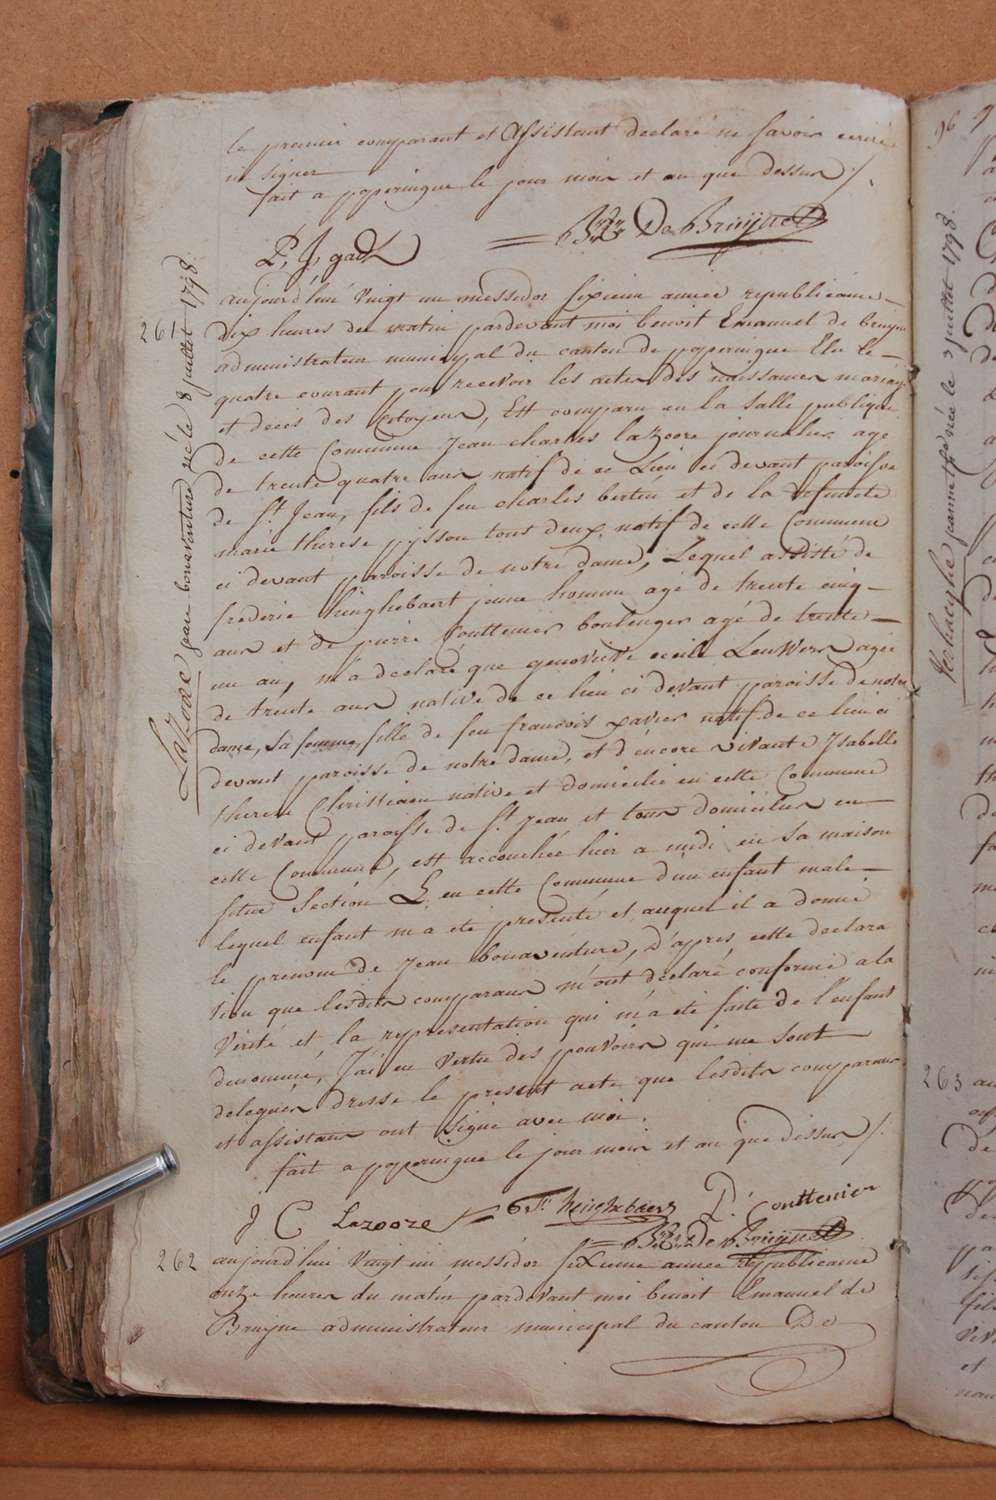 le premier comparant et assistant declaré ne savoir ecrire
ni signer
fait a poperingue le jour mois et an que dessus /.
P. J. gad
B: E: De Bruijne
Lazoore jean bonaventure né le 8 juillet 1798.
261
aujourd'hui vingt un messidor sixieme année republicaine
dix heures du matin pardevant moi benoit Emanuel de bruyne
administrateur municipal du canton de poperingue Elu le
quatre courant pour recevoir les actes des naissances mariages
et deces des citoyens, Est comparu en la salle publique
de cette Commune jean charles lazoore journalier agé
de trente quatre ans natif de ce Lieu ci devant paroisse
de St. Jean, fils de feu charles bertin et de la defuncte
marie therese pysson tous deux natif de cette Commune
ci devant paroisse de notre dame, Lequel assisté de
frederic hinghebaert jeune homme agé de trente cinq
ans et de pierre Couttenier boulenger agé de trente
un an, m'a declaré que genovieve cecile Leuwers agée
de trente ans native de ce lieu ci devant paroisse de notre
dame, sa femme, fille de feu francois xavier natif de ce lieu ci
devant paroisse de notre dame, et d'encore vivante Isabelle
therese Christiaen native et domicilié en cette Commune
ci devant paroisse de St. Jean et tous domiciliés en
cette Commune, est accouchée hier a midi en sa maison
situé Section E. en cette Commune d'un enfant male
lequel enfant m'a eté presenté et auquel il a donné
le prenom de jean bonaventure, d'apres cette declara
tion que lesdits comparans m'ont declaré conforme a la
verité et la representation qui m'a eté faite de l'enfant
denommé, J'ai en vertu des pouvoirs qui me sont
delegués dressé le present acte que lesdits comparans
et assistans ont signé avec moi.
fait a poperingue le jour mois et an que dessus /.
J C Lazoore
heughebaert
P. Couttenier
B: E: De Bruijne
262
aujourd'hui vingt un messidor sixieme année republicaine
onze heures du matin pardevant moi benoit Emanuel de
Bruyne administrateur municipal du canton De
96
jeanne née le 3 juillet 1798.
263